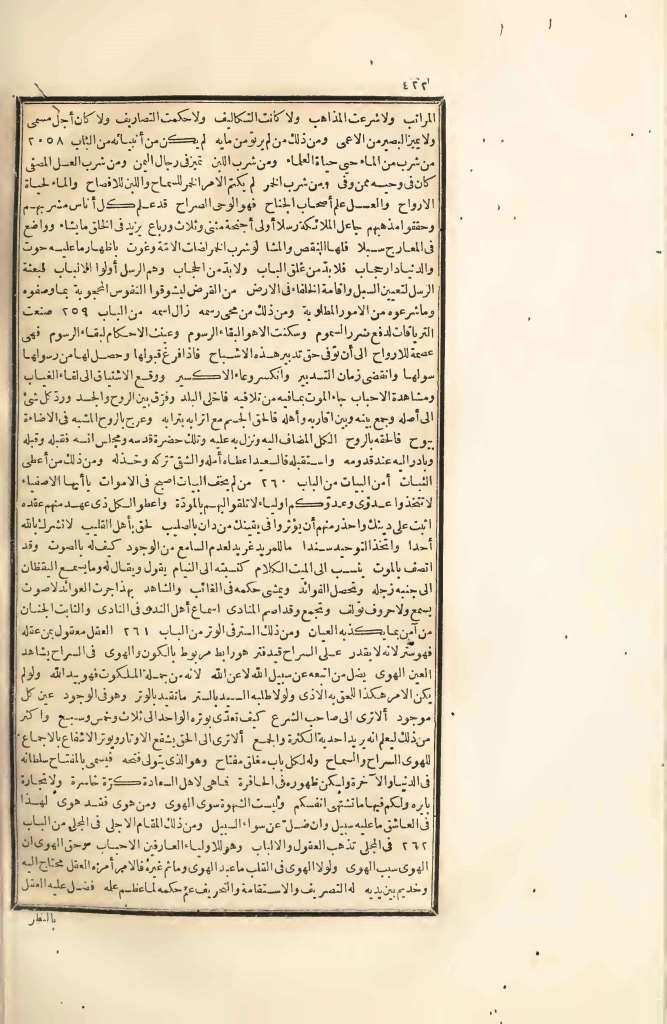 ٤٢٢
المراتب ولا شرعت المذاهب ولا كانت التكاليف ولا حكمت التصاريف ولا كان أجل مسمى
ولا يميز البصير من الاعمى ومن ذلك من لم يرتو من مايه لم يكن من أنبيائه من الباب ٢٥٨
من شرب من الماء حيي حياة العلماء ومن شرب اللبن تميز فى رجال اليمن ومن شرب العسل المصفى
كان فى وحيه ممن وفى ومن شرب الخر لم يكتم الامر الخر للسماح واللبن للافصاح والماء لحياة
الارواح والعسل علم أصحاب الجناح فهو الوحى الصراح قد علم كل أناس مشربهم
وحققوا مذهبهم جاعل الملائكة رسلا أولى أجنحة مثنى وثلاث ورباع يزيد فى الخلق ما يشاء وواضع
فى المعارج سبلا فلها النقص والمشا لو شرب الخر اضلت الامة وغوت باظهار ما عليه حوت
والدنيا دار حجاب فلا بد من غلق الباب ولا بد من الحجاب وهم الرسل أولوا الالباب فبعثة
الرسل لتعيين السبل واقامة الخلفاء فى الارض من القرض ليشوقوا النفوس المحجوبة بما وصفوه
وما شرعوه من الامور المطلوبة ومن ذلك من محى رسمه زال اسمه من الباب ٢٥٩ صنعت
الترياقات لدفع ضرر السموم وسكنت الاهو البقاء الرسوم وعينت الاحكام لبقاء الرسوم فهى
عصمة للارواح الى أن توفى حق تدبير هذه الاشباح فاذا فرغ قبولها وحصل لها من رسولها
سولها وانقضى زمان التدبير وانكسر وعاء الاكسير ووقع الاشتياق الى لقاء الغياب
ومشاهدة الاحباب جاء الموت بما فيه من تلافيه فاخلى البلد وفرق بين الروح والجسد ورد كل شئ
الى أصله وجمع بينه وبين اقاربه وأهله فالحق الجسم مع اترابه بترابه وعرج بالروح المشبه فى الاضاءة
بيوح فالحقه بالروح الكل المضاف اليه ونزل به عليه وتلك حضرة قدسه ومجلس انسه فقبله وقبله
وبادر اليه عند قدومه واستقبله فالسعيد اعطاه أمله والشقى تركه وخذله ومن ذلك من أعطى
الثبات أمن البيات من الباب ٢٦٠ من لم يخف البيات اصبح فى الاموات يا أيها الاصفياء
لا تتخذوا عدوى وعدوكم اولياء لا تلقوا اليهم بالمودة واعطوا لكل ذى عهد منهم عقده
اثبت على دينك واحذر منهم أن يؤثروا فى يقينك من دان بالصليب لحق بأهل القليب لا تشرك بالله
أحدا واتخذ التوحيد سندا ما للمريد غريد لعدم السامع من الوجود كيف له بالصوت وقد
اتصف بالموت ينسب الى الميت الكلام كنسبته الى النيام يقول ويقال له وما يسمع اليقظان
الى جنبه زجله وتحصل الفوائد ويمشى حكمه فى الغائب والشاهد بهذا جرت العوائد لا صوت
يسمع ولا حروف تؤلف وتجمع وقد اصم المنادى اسماع أهل الندى فى النادى والثابت الجنان
من آمن بما يكذبه العيان ومن ذلك الستر فى الوتر من الباب ٢٦١ العقل معقول بمن عقله
فهو ستر لانه لا يقدر على السراح قيد فتر هو رابط مربوط بالكون والهوى فى السراح يشاهد
العين الهوى يضل من اتبعه عن سبيل الله لا عن الله لانه من جملة الملكوت فهو بيد الله ولو لم
يكن الامر هكذا للحق به الاذى ولولا طلبه السيد بالستر ما تقيد بالوتر وهو فى الوجود عين كل
موجود ألا ترى الى صاحب الشرع كيف تعدى بوتره الواحد الى ثلاث وخمس وسبع واكثر
من ذلك ليعلم انه يريد احدية الكثرة والجمع ألا ترى الى الحق يشفع الاوتار ويوتر الاشفاع بالاجماع
للهوى السراح والسماح وله لكل باب مغلق مفتاح وهو الذى يتولى فتحه فيسمى بالمفتاح سلطانه
فى الدنيا والآخرة ولكن ظهوره فى الحافرة فما هى لاهل السعادة كرة خاسرة ولا تجارة
بايره ولكم فيها ما تشتهى انفسكم وليست الشهوة سوى الهوى ومن هوى فقد هوى لهذا
فى العاشق ما عليه سبيل وان ضل عن سواء السبيل ومن ذلك المقام الاجلى فى المجلى من الباب
٢٦٢ فى المجلى تذهب العقول والالباب وهو للاولياء العارفين الاحباب وحق الهوى ان
الهوى سبب الهوى ولولا الهوى فى القلب ما عبد الهوى وما ثم غيره فالامر أمره العقل محتاج اليه
وخديم بين يديه له التصريف والاستقامة والتحريف عم حكمه لما عظم علمه فضل عليه العقل
بالنظر